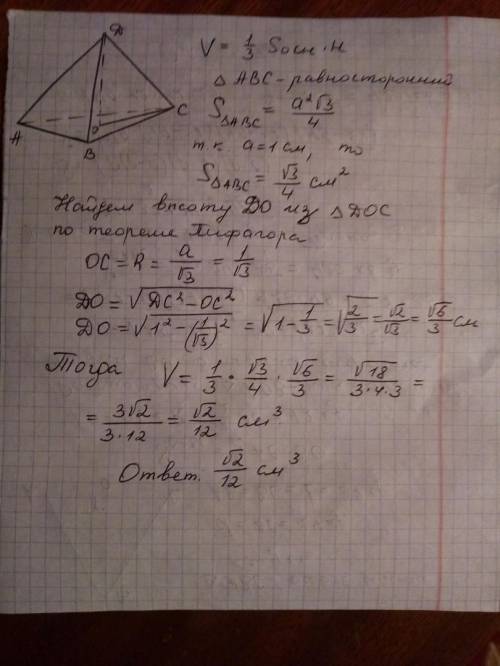 D
A
B
C
O
V = 1/3 Sосн · H
△ ABC - равносторонний
S△ABC = a²√3/4
т.к. a = 1 см, то
S△ABC = √3/4 см²
Найдем высоту DO из △DOC
по теореме Пифагора
OC = R = a/√3 = 1/√3
DO = √(DC² - OC²)
DO = √(1² - (1/√3)²) = √(1 - 1/3) = √(2/3) = √2/√3 = √6/3 см
Тогда V = 1/3 · √3/4 · √6/3 = √18/(3·4·3) =
= 3√2/(3·12) = √2/12 см³
Ответ. √2/12 см³